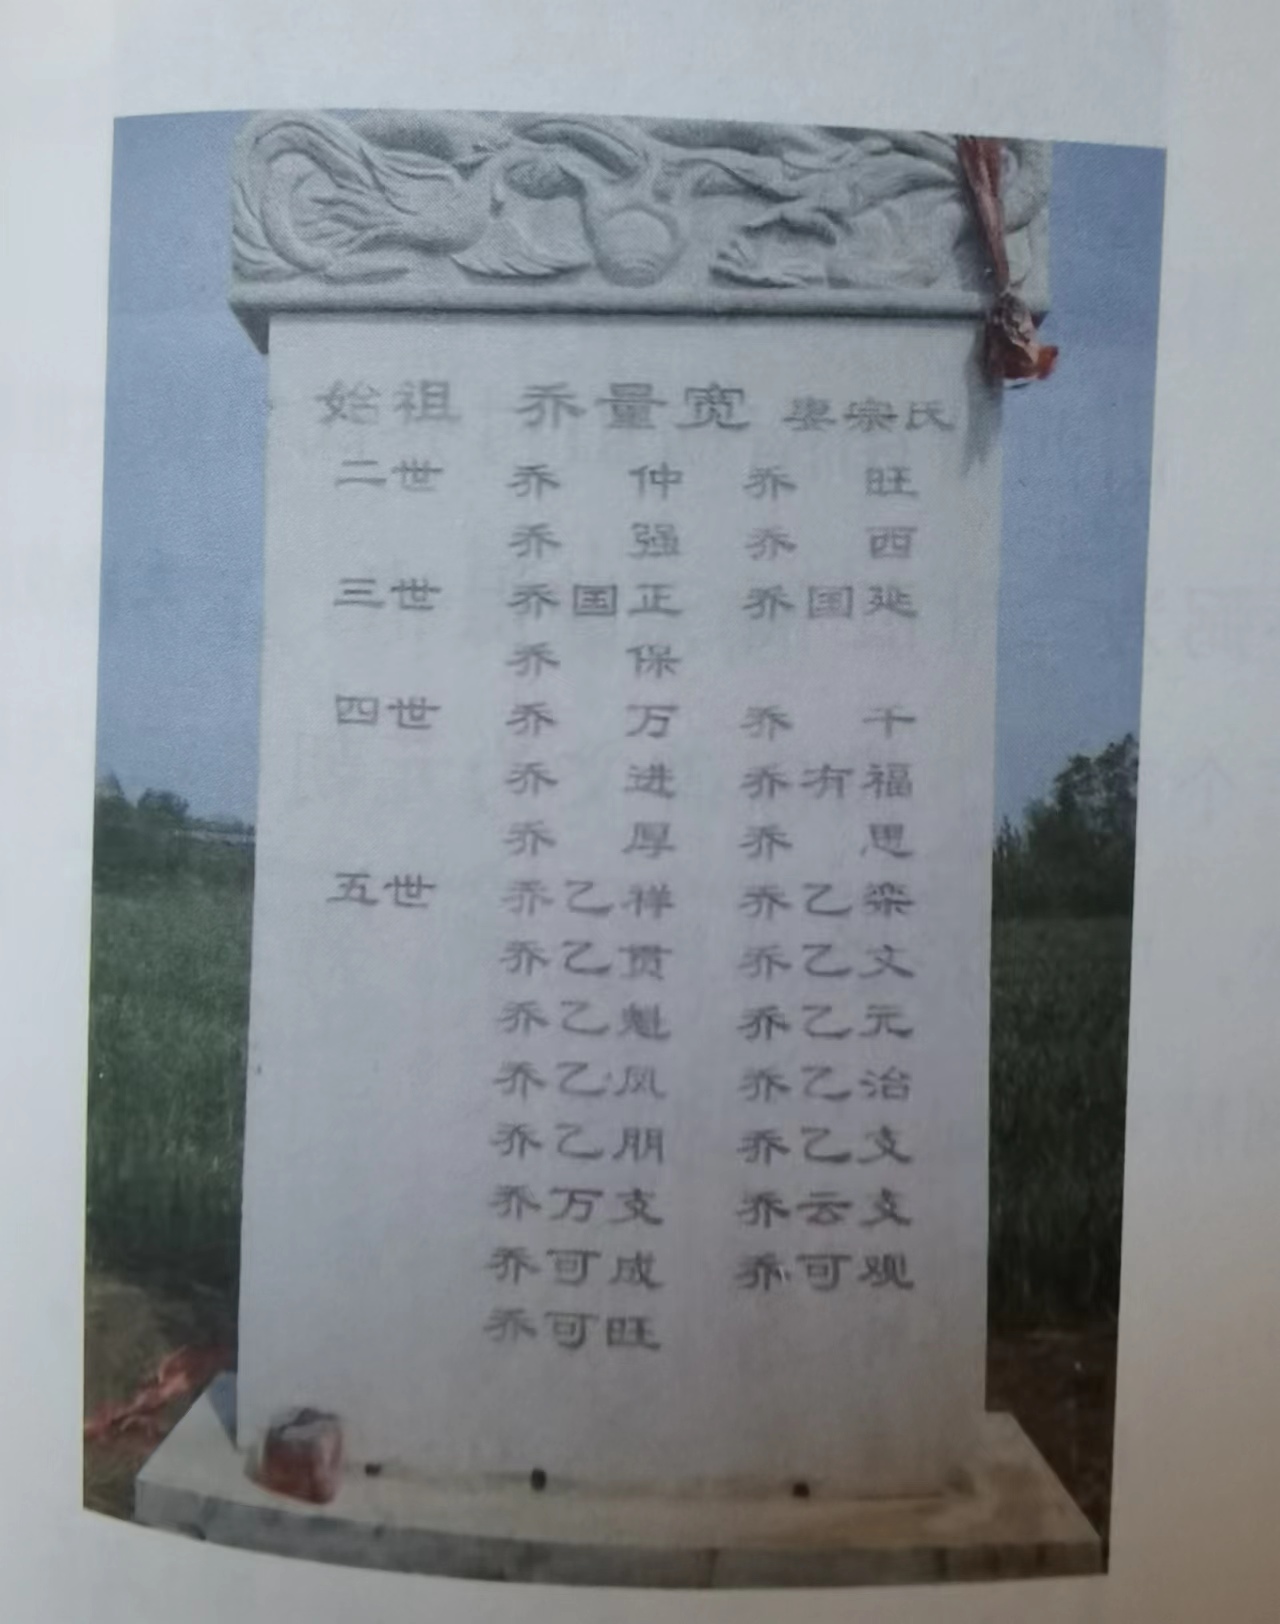 始祖 乔量宽 妻宗氏
二世 乔仲 乔旺
乔强 乔西
三世 乔国正 乔国延
乔保
四世 乔万 乔千
乔进 乔有福
乔厚 乔思
五世 乔乙祥 乔乙荣
乔乙贯 乔乙文
乔乙魁 乔乙元
乔乙风 乔乙治
乔乙朋 乔乙支
乔万支 乔云支
乔可成 乔可观
乔可旺